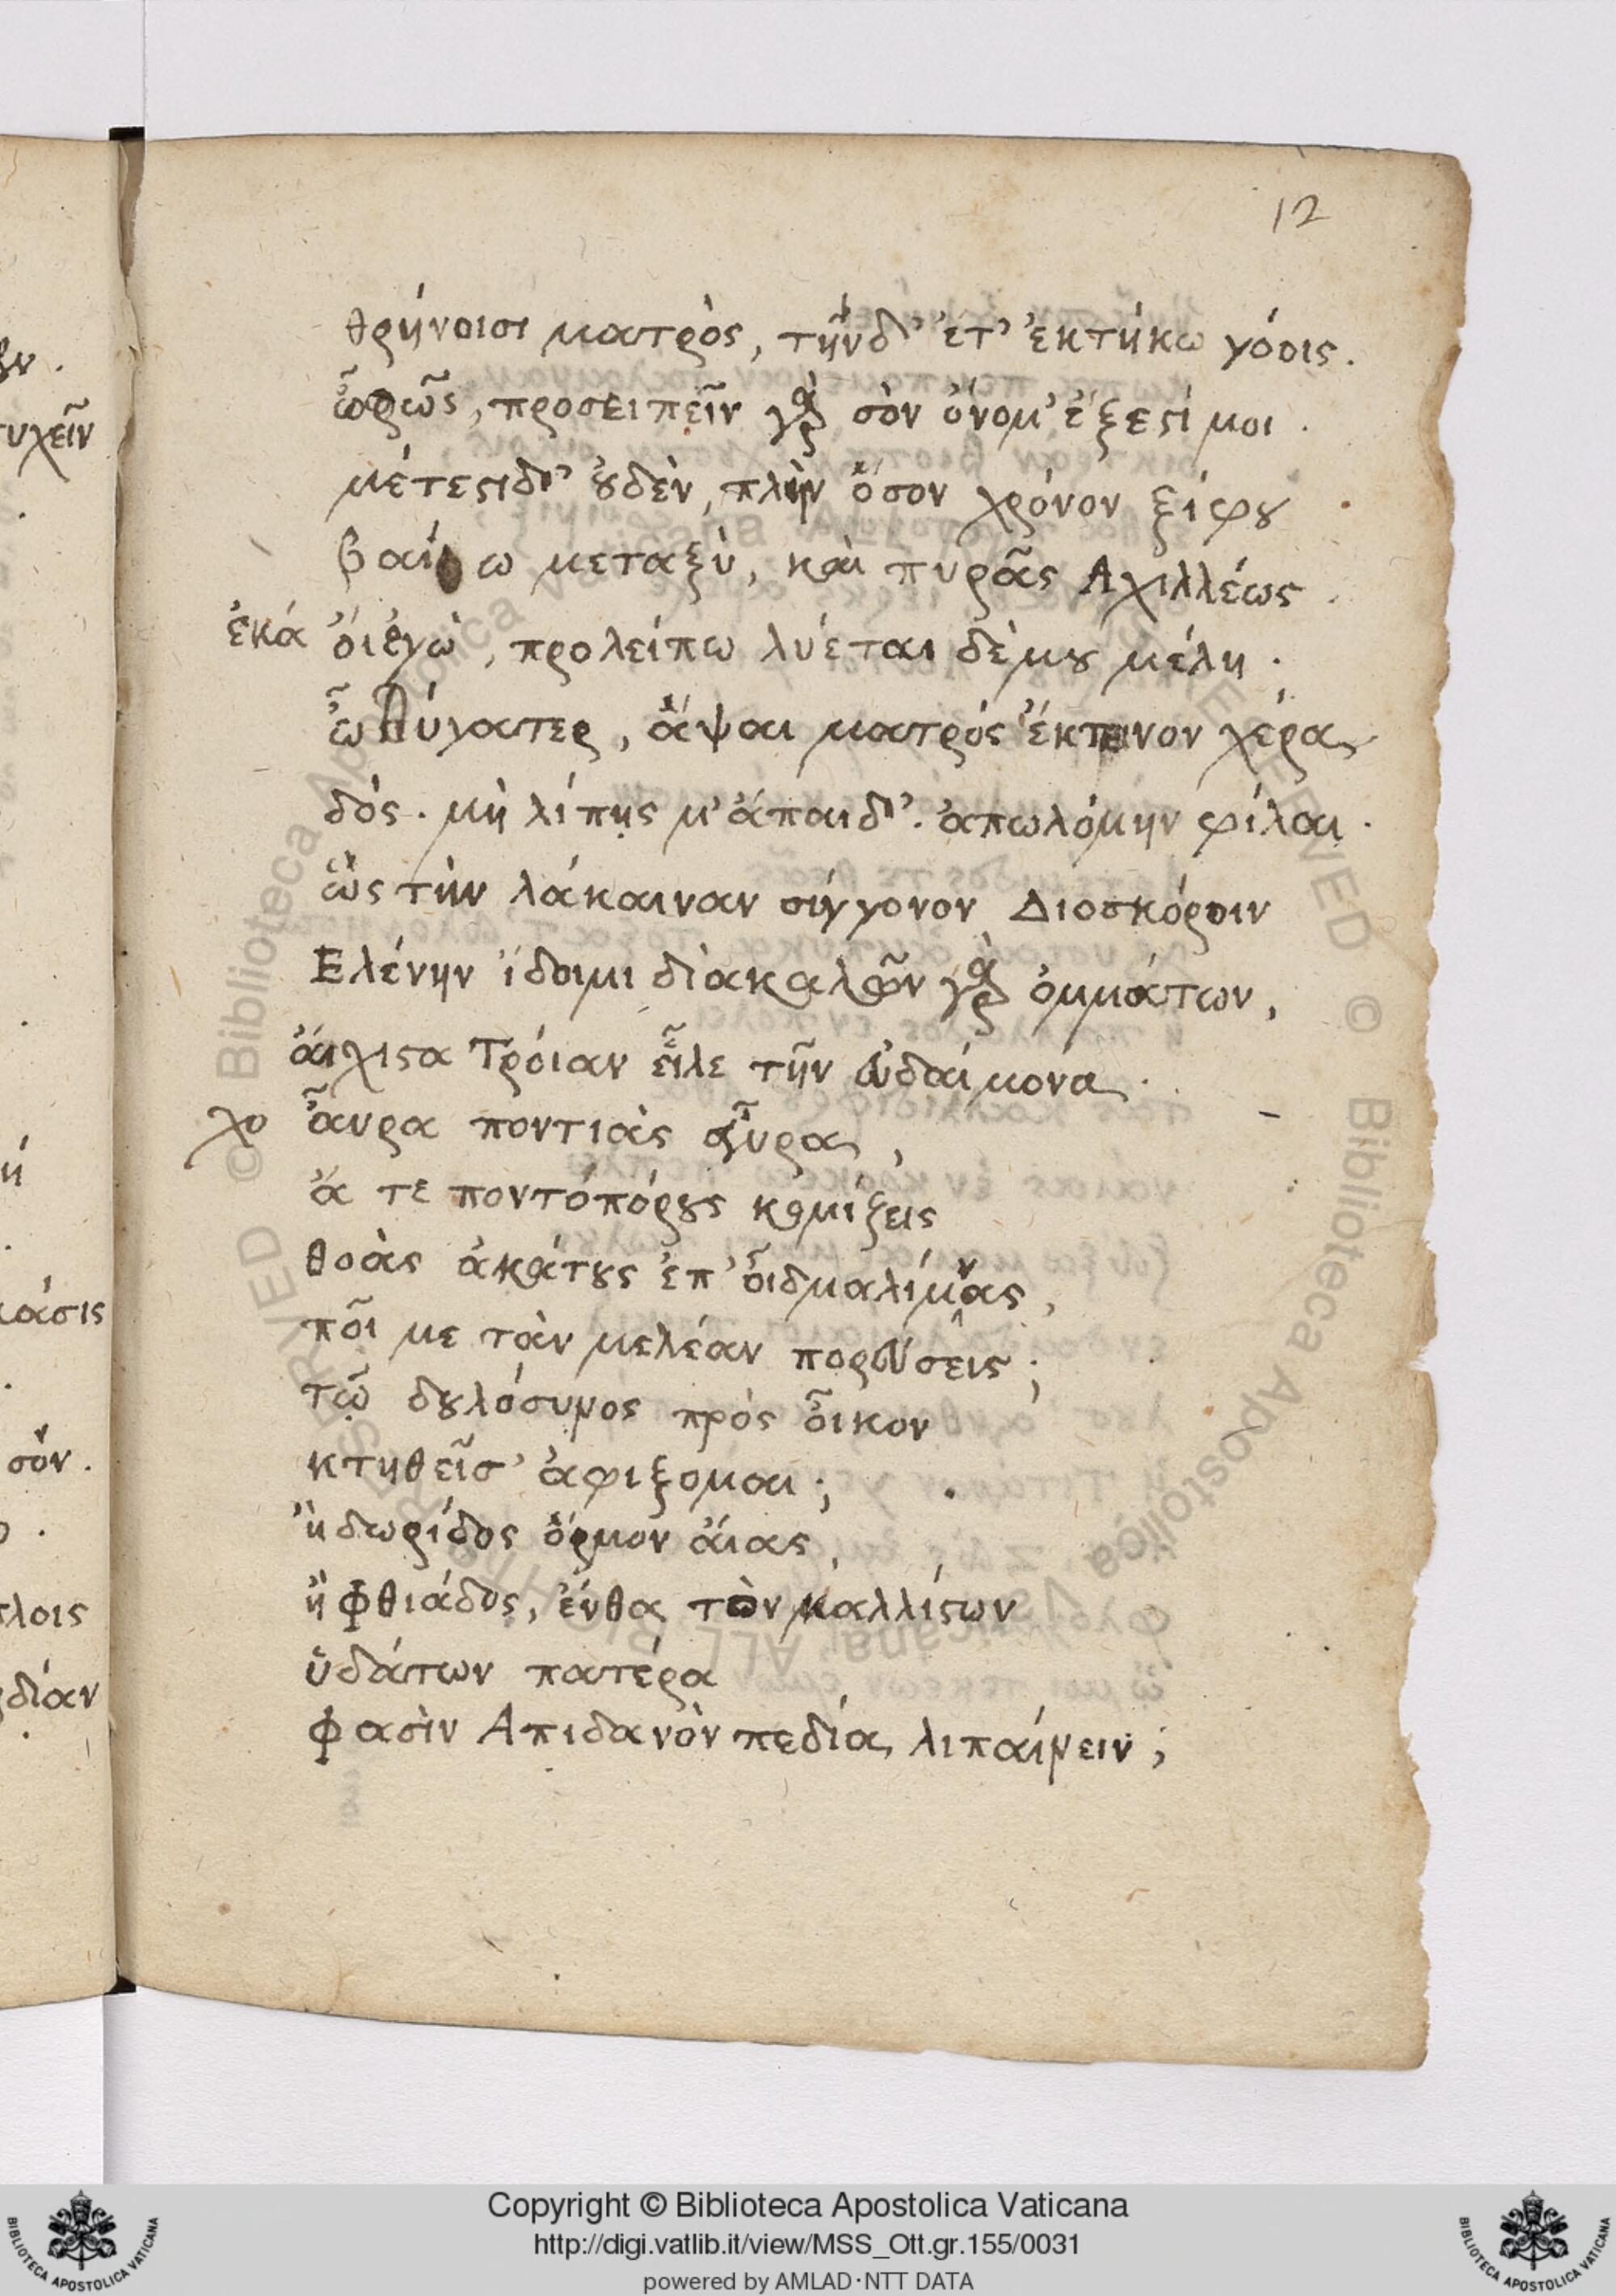 ȣν.
τυχεῖν
κάσις
σὸν.
λοις
δίαν
12
θρήνοισι ματρὸς, τὴνδ' ἐτ' ἐκτήκω γόοις.
ὦφῶς, προσειπεῖν γὰρ σὸν ὄνομ' ἔξεϛί μοι.
μέτεϛιδ' ȣ̓δὲν, πλὴν ὅσον χρόνον ξίφȣ
βαίνω μεταξὺ, καὶ πυρᾶς Αχιλλέως.
ἑκά οἰεγὼ, προλείπω λύεται δέμȣ μέλη.
ὦ θύγατερ, ἅψαι ματρός ἔκτεινον χέρα
δὸς. μὴ λίπῃς μ' ἄπαιδ'. ἀπωλόμην φίλαι.
ὣς τὴν λάκαιναν σύγγονον Διοσκόροιν
Ελένην ἴδοιμι διακαλῶν γὰρ ὀμμάτων,
ἄιχιϛα Τρόιαν εἷλε τῆν ευδαίμονα.
χο ἆυρα ποντιὰς ἆυρα,
ἅ τε ποντόπόρȣς κομίζεις
θοὰς ἀκάτȣς ἐπ' οἶδμαλίμνας,
ποῖ με τὰν μελέαν πορεύσεις;
τῷ δȣλόσυνος πρός οἶκον
κτηθεῖσ' ἀφιξομαι;
ἢ δωρίδος ὅρμον ἄιας,
ἢ Φθιάδος, ἔνθα τὸν καλλίϛων
ὑδάτων πατέρα
φασὶν Απιδανὸν πεδία λιπαίνειν;
Copyright © Biblioteca Apostolica Vaticana
http://digi.vatlib.it/view/MSS_Ott.gr.155/0031
powered by AMLAD·NTT DATA